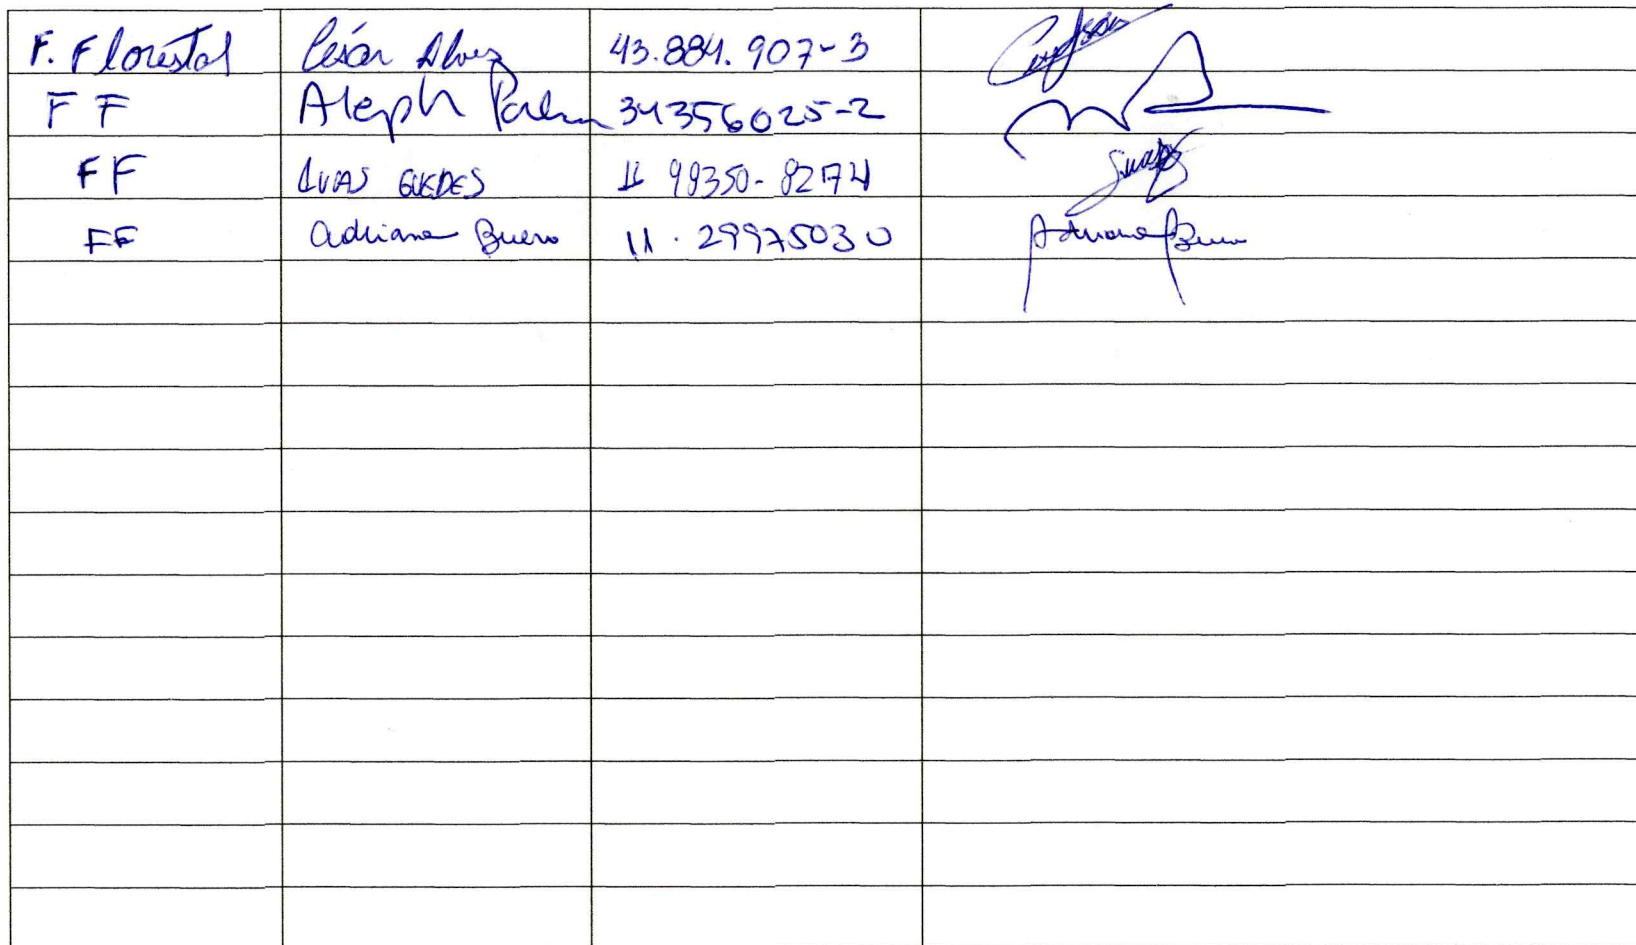 F. Florestal César Alves 43.884.907-3
FF Aleph Palma 34356025-2
FF LUCAS GUEDES 11 99350-8274
FF Adriana Bueno 11. 29975030 Adriana Bueno